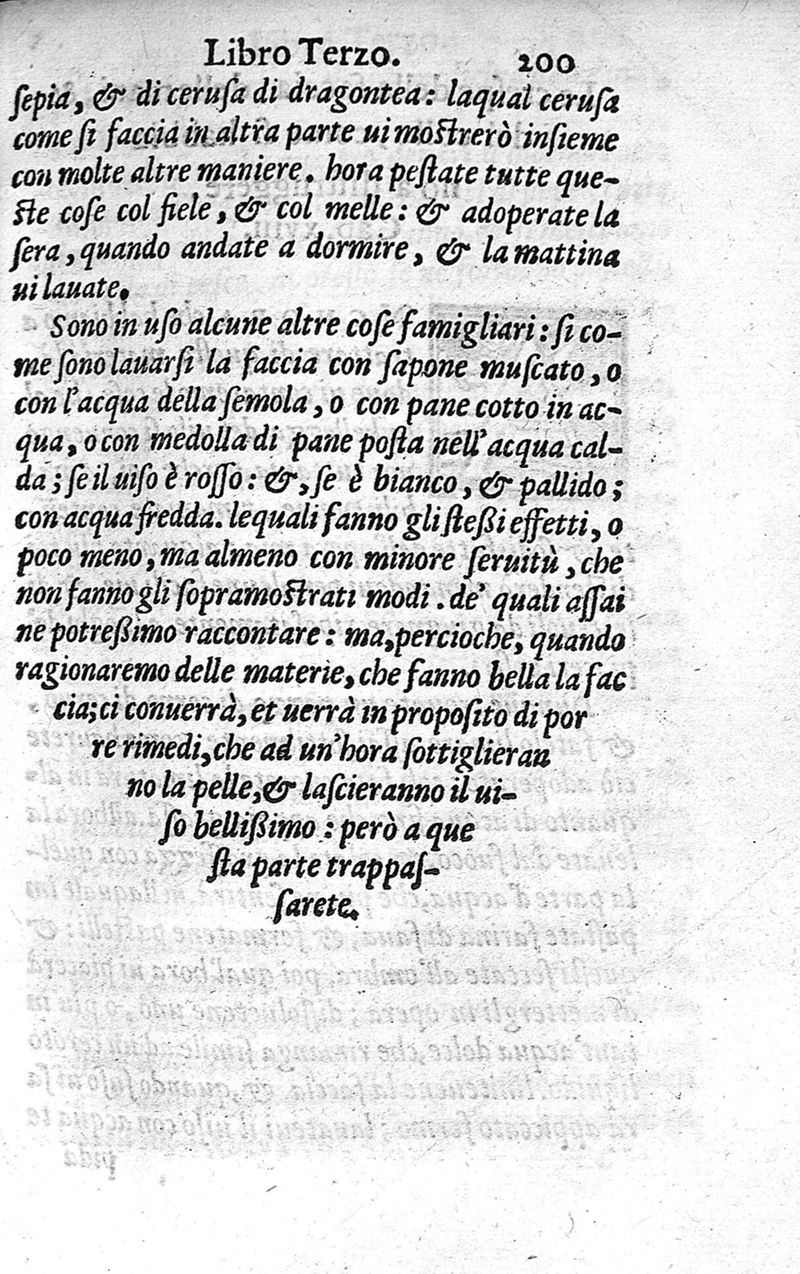 Libro Terzo. 200
ſepia, & di ceruſa di dragontea: laqual ceruſa
come ſi faccia in altra parte ui moſtrerò inſieme
con molte altre maniere. hora peſtate tutte que-
ſte coſe col fiele, & col melle: & adoperate la
ſera, quando andate a dormire, & la mattina
ui lauate.
Sono in uſo alcune altre coſe famigliari: ſi co-
me ſono lauarſi la faccia con ſapone muſcato, o
con l'acqua della ſemola, o con pane cotto in ac-
qua, o con medolla di pane poſta nell'acqua cal-
da; ſe il uiſo è roſſo: &, ſe è bianco, & pallido;
con acqua fredda. lequali fanno gli ſteßi effetti, o
poco meno, ma almeno con minore ſeruitù, che
non fanno gli ſopramoſtrati modi. de' quali aſſai
ne potreßimo raccontare: ma, percioche, quando
ragionaremo delle materie, che fanno bella la fac
cia; ci conuerrà, et uerrà in propoſito di por
re rimedi, che ad un'hora ſottiglieran
no la pelle, & laſcieranno il ui-
ſo bellißimo: però a que
ſta parte trappaſ-
ſarete.